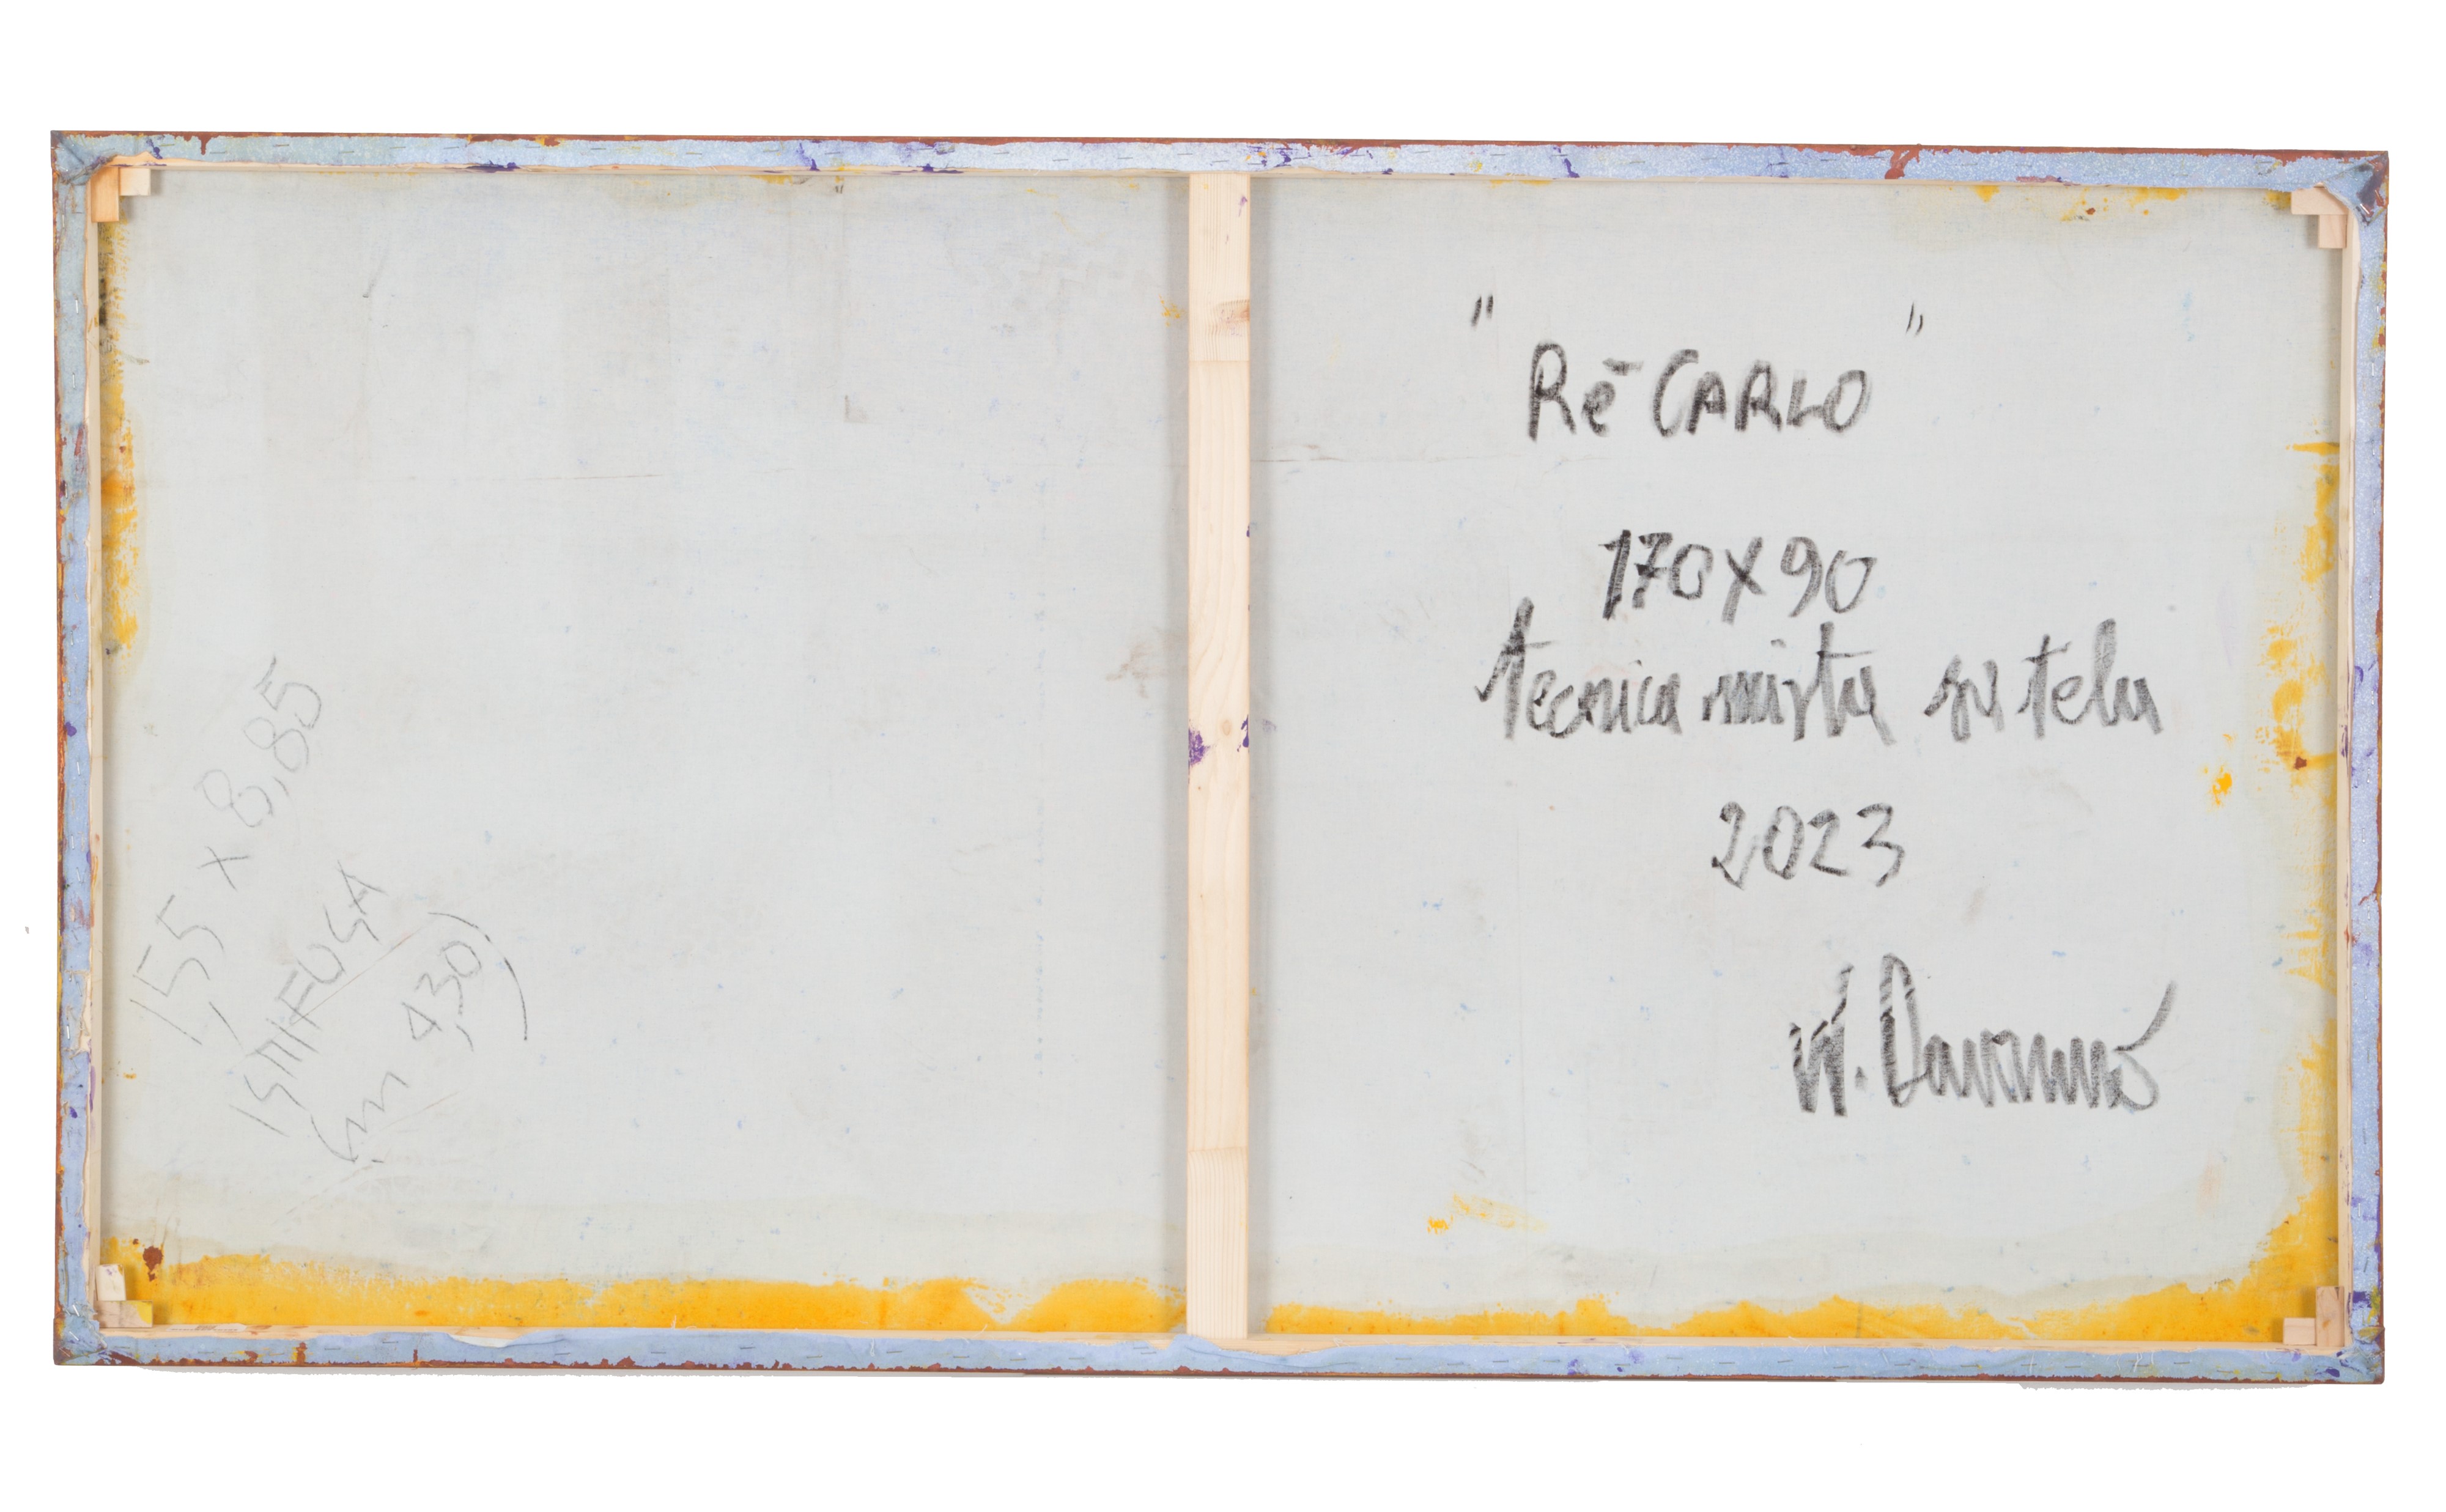 1,55 x 8,85
IGNIFUGA
4,30)
" Rē CARLO "
170X90
tecnica mista su tela
2023